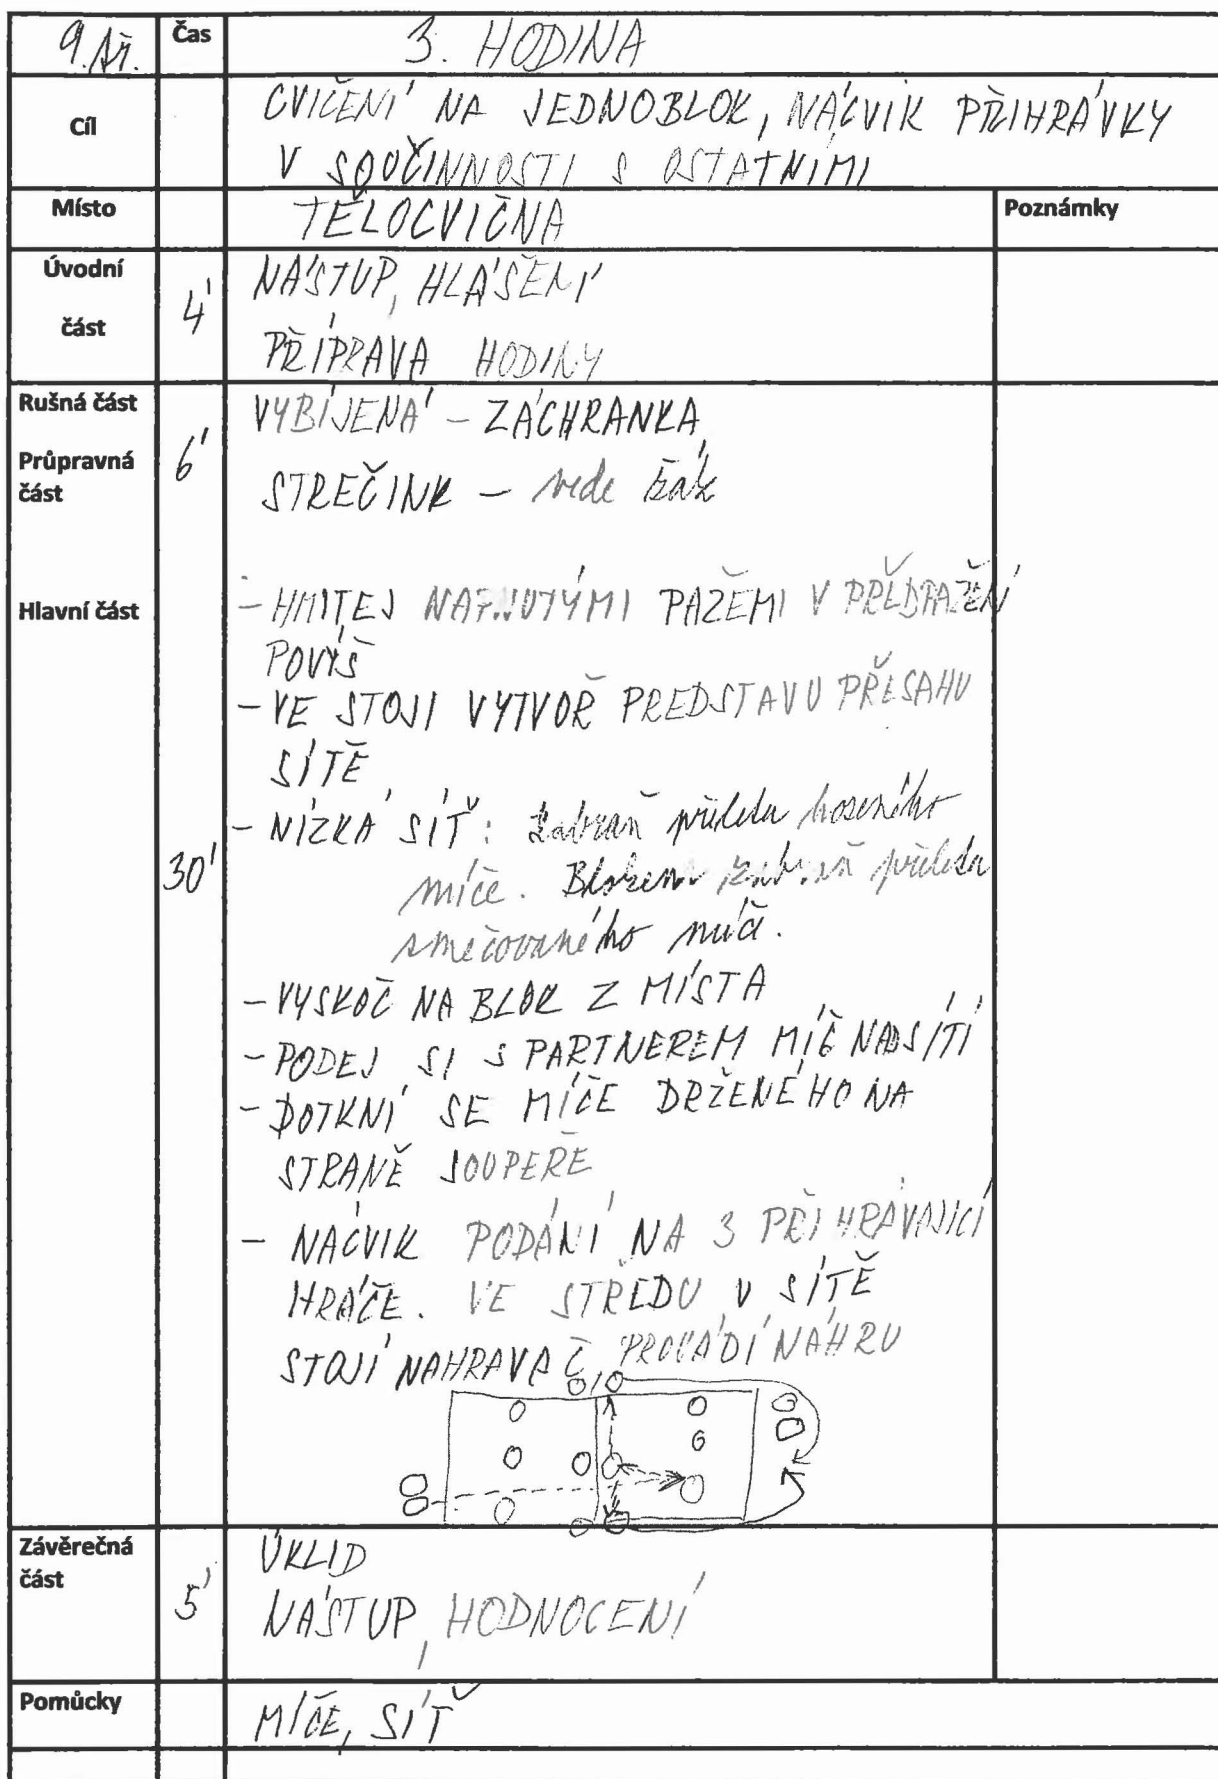 9. tř. Čas 3. HODINA
Cíl CVIČENÍ NA JEDNOBLOK, NÁCVIK PŘIHRÁVKY
V SOUČINNOSTI S OSTATNÍMI
Místo TĚLOCVIČNA Poznámky
Úvodní NÁSTUP, HLÁŠENÍ
část 4' PŘÍPRAVA HODINY
Rušná část VYBÍJENÁ - ZÁCHRANKA
Průpravná 6' STREČINK - vede žák
část
Hlavní část - HMITEJ NAPNUTÝMI PAŽEMI V PŘEDPAŽENÍ
POVÝŠ
- VE STOJI VYTVOŘ PREDSTAVU PŘESAHU
SÍTĚ
- NÍZKÁ SÍŤ: Zabraň přeletu hozeného
30' míče. Blokem zabraň přeletu
smečovaného míče.
- VYSKOČ NA BLOK Z MÍSTA
- PODEJ SI S PARTNEREM MÍČ NAD SÍTÍ
- DOTKNI SE MÍČE DRŽENÉHO NA
STRANĚ SOUPEŘE
- NÁCVIK PODÁNÍ NA 3 PŘIHRÁVAJICÍ
HRÁČE. VE STŘEDU U SÍTĚ
STOJÍ NAHRAVAČ PROVÁDÍ NÁHRU
Závěrečná ÚKLID
část 5' NÁSTUP, HODNOCENÍ
Pomůcky MÍČE, SÍŤ